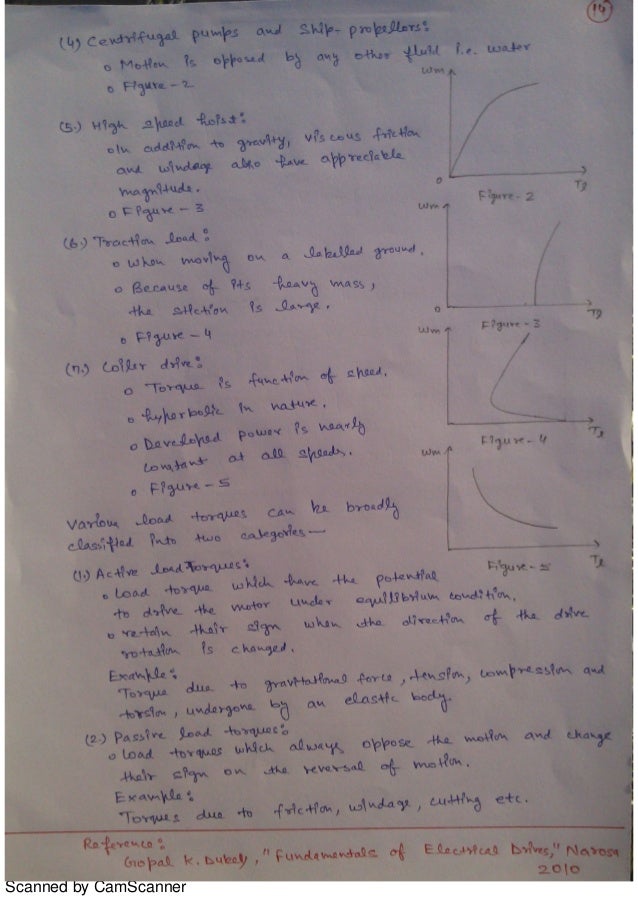 14
(4) Centrifugal pumps and Ship-propellors:
o Motion is opposed by any other fluid i.e. water
o Figure-2
ωm
0
Tl
Figure-2
(5.) High speed hoist:
o In addition to gravity, viscous friction
and windage also have appreciable
magnitude.
o Figure-3
ωm
0
Tl
Figure-3
(6.) Traction load:
o When moving on a labelled ground.
o Because of its heavy mass,
the stiction is large.
o Figure-4
ωm
Tl
Figure-4
(7.) Coiler drive:
o Torque is function of speed.
o hyperbolic in nature.
o Developed power is nearly
constant at all speeds.
o Figure-5
ωm
Tl
Figure-5
Various load torques can be broadly
classified into two categories—
(1.) Active load Torques:
o Load torque which have the potential
to drive the motor under equilibrium condition.
o retain their sign when the direction of the drive
rotation is changed.
Example:
Torque due to gravitational force, tension, compression and
torsion, undergone by an elastic body.
(2.) Passive load torques:
o Load torques which always oppose the motion and change
their sign on the reversal of motion.
Example:
Torques due to friction, windage, cutting etc.
Reference:
Gopal K. Dubey, "Fundamentals of Electrical Drives," Narosa
2010
Scanned by CamScanner